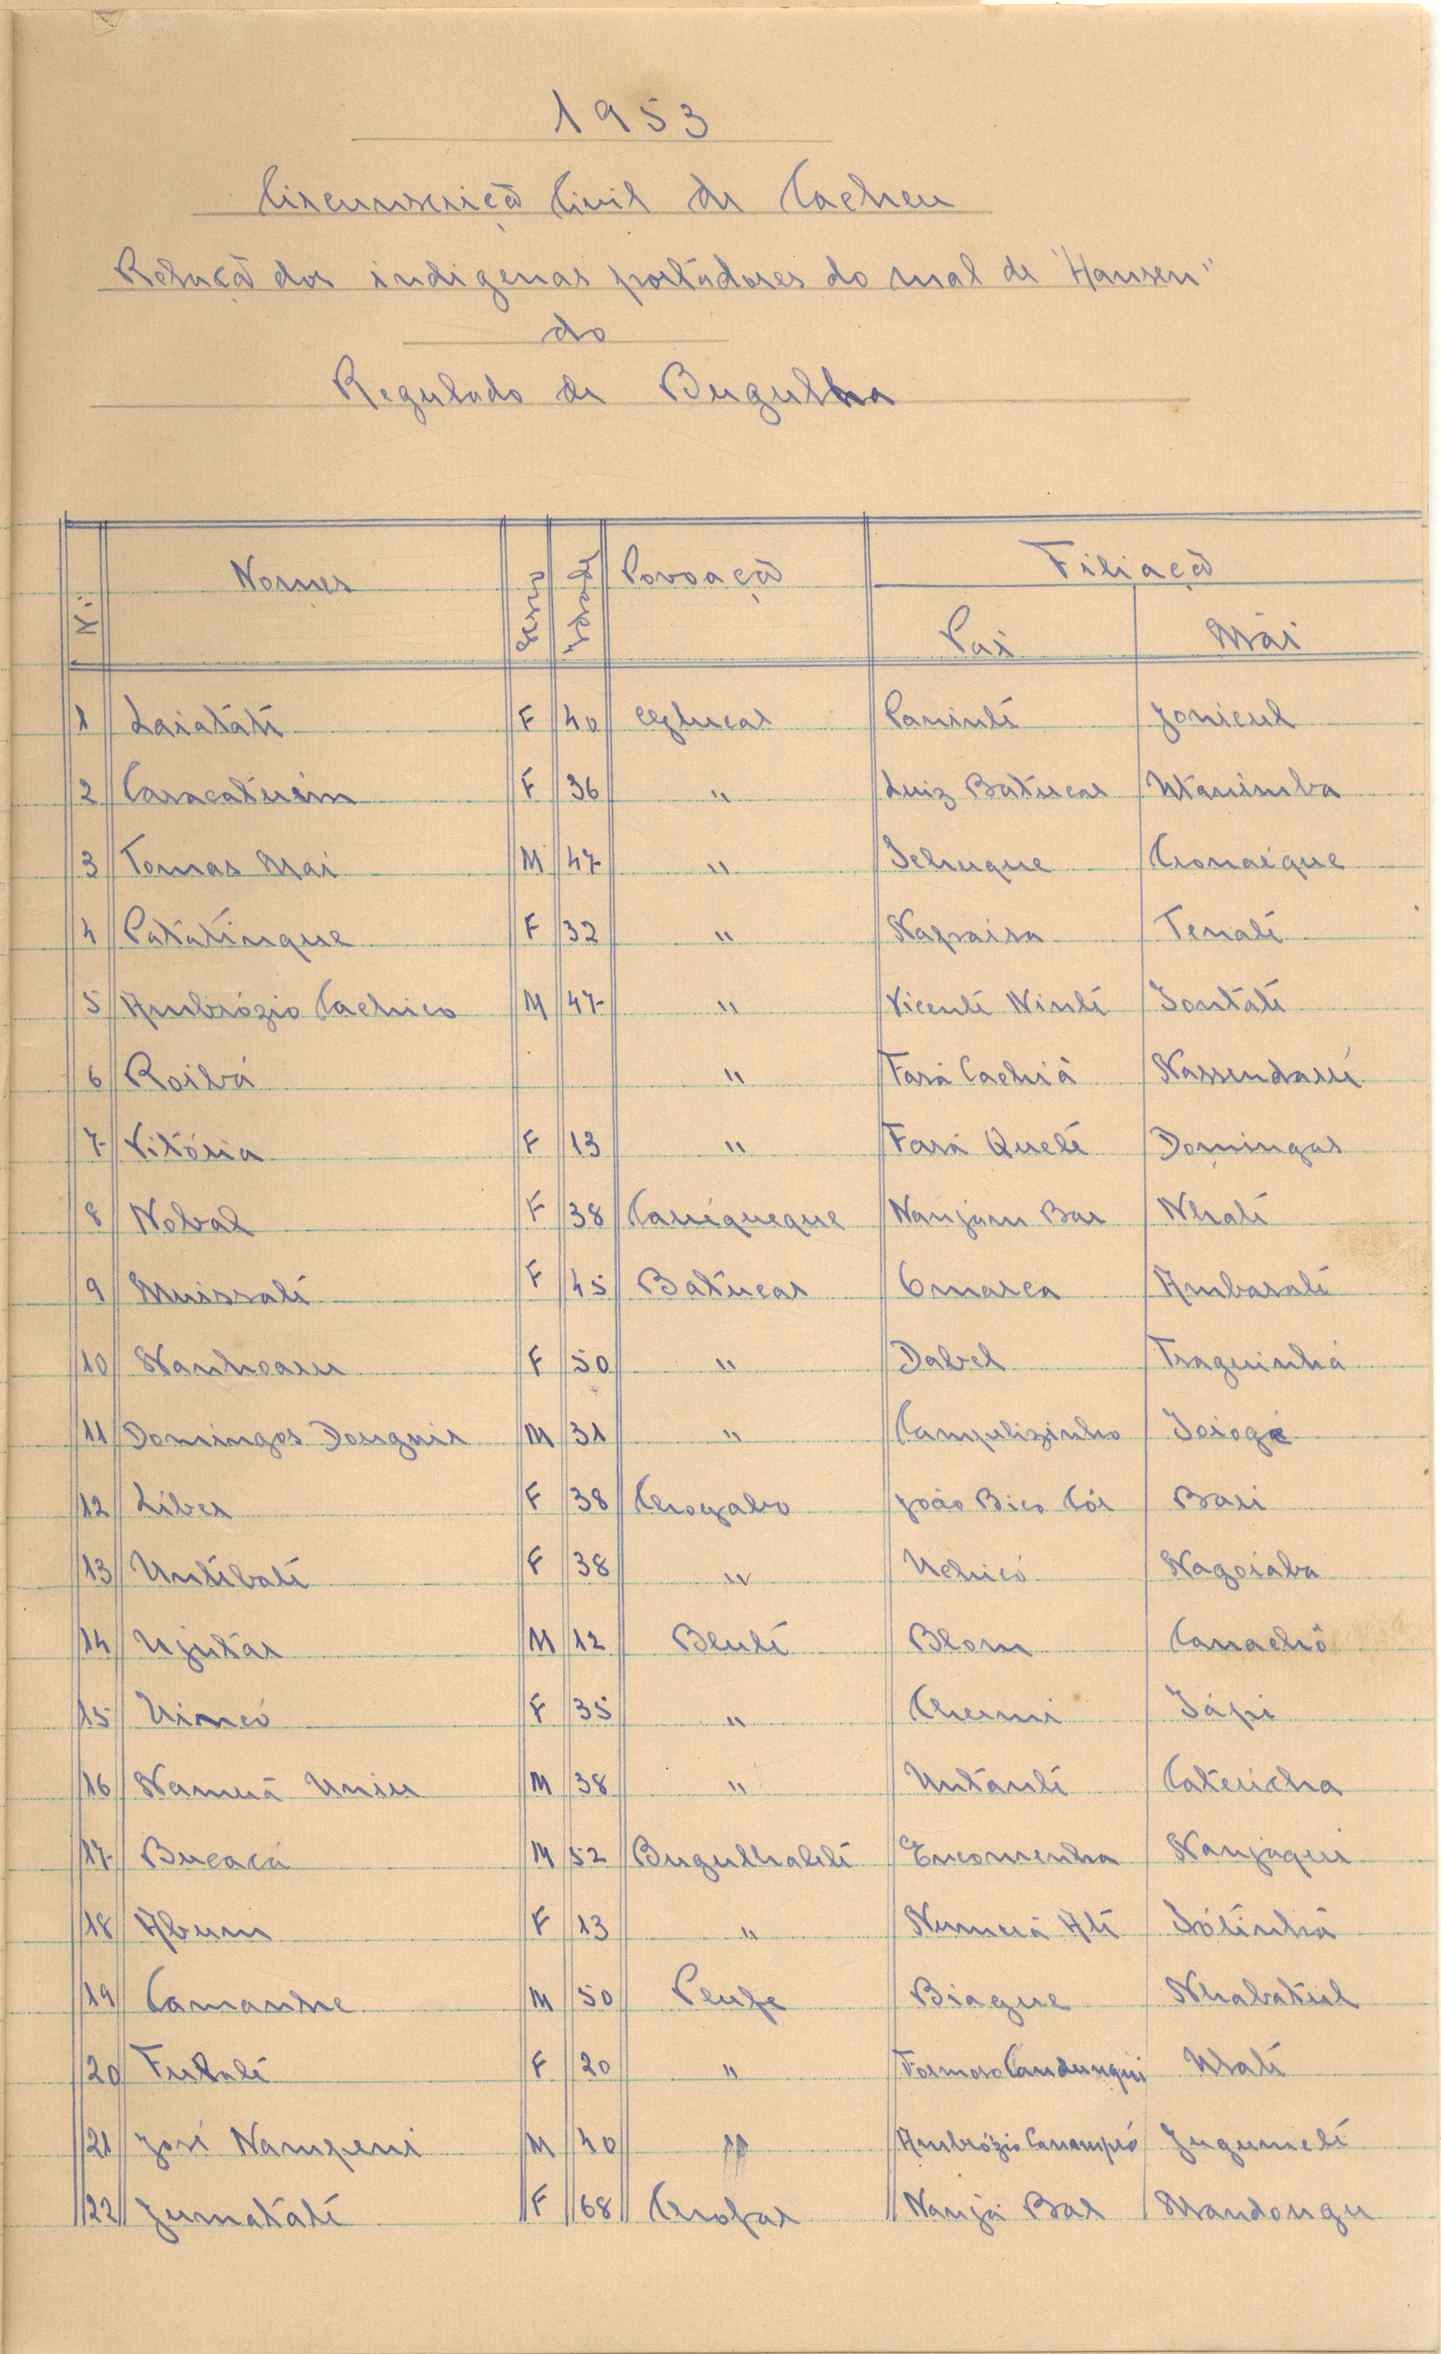 1953
Circunscriçã Civil de Cacheu
Relaçã dos indigenas portadores do mal de "Hansen"
do
Regulado de Bugulha
N.º Nomes Sexos Idades Povoaçã Filiaçã
Pai Mãi
1 Laiatáti F 40 Paninti Jonicul
2 Caracatuim F 36 " Luiz Batucar Utanimba
3 Tomas Mai M 47 " Ichuque Cronaique
4 Patatinque F 32 " Napraisa Tenati
5 Ambrózio Cachico M 47 " Vicenti Ninti Iontáti
6 Roibá " Fará Cachiã
7 Vitória F 13 " Fará Queti Domingas
8 Nobal F 38 Cariqueque Nanjam Bar Nhati
9 Muissati F 45 Batucar Omarca Ambarati
10 Nanhoaru F 50 " Dabel Traguinhá
11 Domingos Donguir M 31 " Campelizinho Ioioge
12 Liber F 38 João Bico Cór Bari
13 Untibati F 38 " Uchicó Nagoiaba
14 Ujutar M 12 Blenti Blom Canachô
15 Uincó F 35 " Iápi
16 Namuá Uniu M 38 " Untanti Catericha
17 Bucacá M 52 Encomenha Nanjaqui
18 Abum F 13 " Numuá Ati Iótinhá
19 Camanhe M 50 Biague Nhabatul
20 Futati F 20 " Formoso Candunqui Usati
21 José Nampeni M 40 " Ambrózio Canampó Jugumeti
22 Jumatáti F 68 Nanja Bal Mandongu